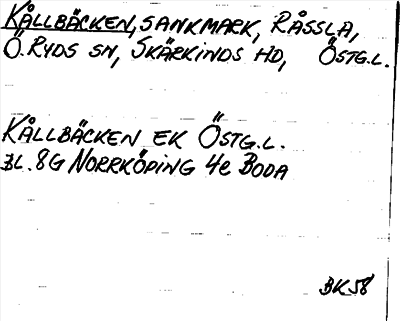 KÅLLBÄCKEN, SANKMARK, RÅSSLA,
Ö. RYDS SN, SKÄRKINDS HD, ÖSTG.L.
KÅLLBÄCKEN EK ÖSTG.L.
BL. 8G NORRKÖPING 4e BODA
BK58